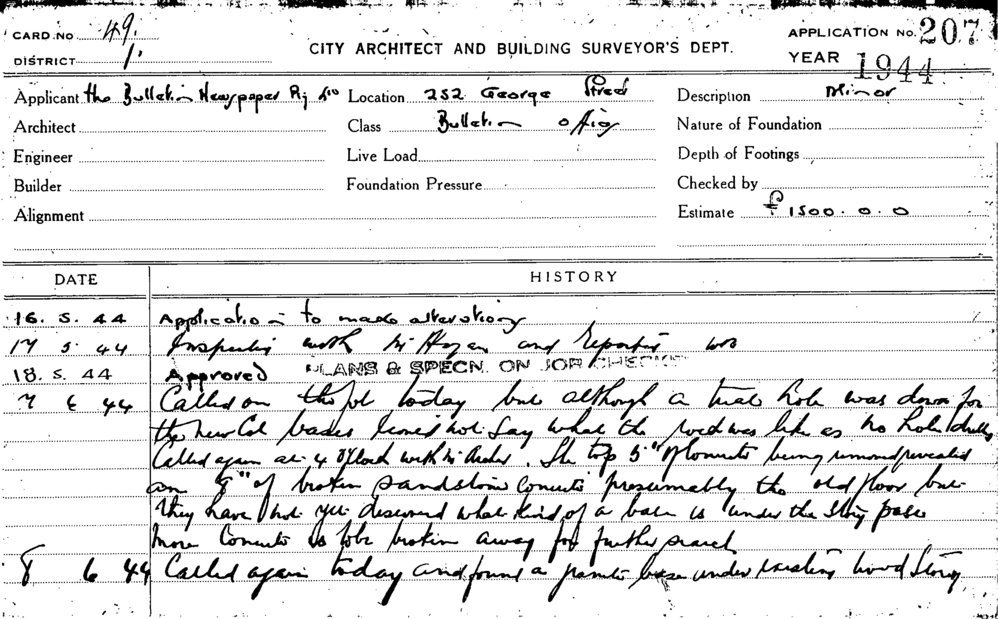 CARD NO 49.
DISTRICT 1.
CITY ARCHITECT AND BUILDING SURVEYOR'S DEPT.
APPLICATION No. 207
YEAR 1944
Applicant the Bulletin Newspaper Location 252 George Street Description Minor
Architect Class Bulletin office Nature of Foundation
Engineer Live Load Depth of Footings
Builder Foundation Pressure Checked by
Alignment Estimate £1500.0.0
DATE HISTORY
16. 5. 44 Application to make alterations
17 5 44 Inspection with and reported
18. 5. 44 Approved PLANS & SPECN. ON JOB CHECKED
7 6 44 Called on the job today but although a trial hole was down for
the new Col bases not say what the was like as no hole
Called again at 4 O'Clock with Mr. The top 5" of Concrete being removed revealed
an 8" of broken Sandstone Concrete presumably the old floor but
they have not yet discovered what kind of a base is under the
more Concrete is to be broken away for further search
8 6 44 Called again today and found a granite base under existing wood Story